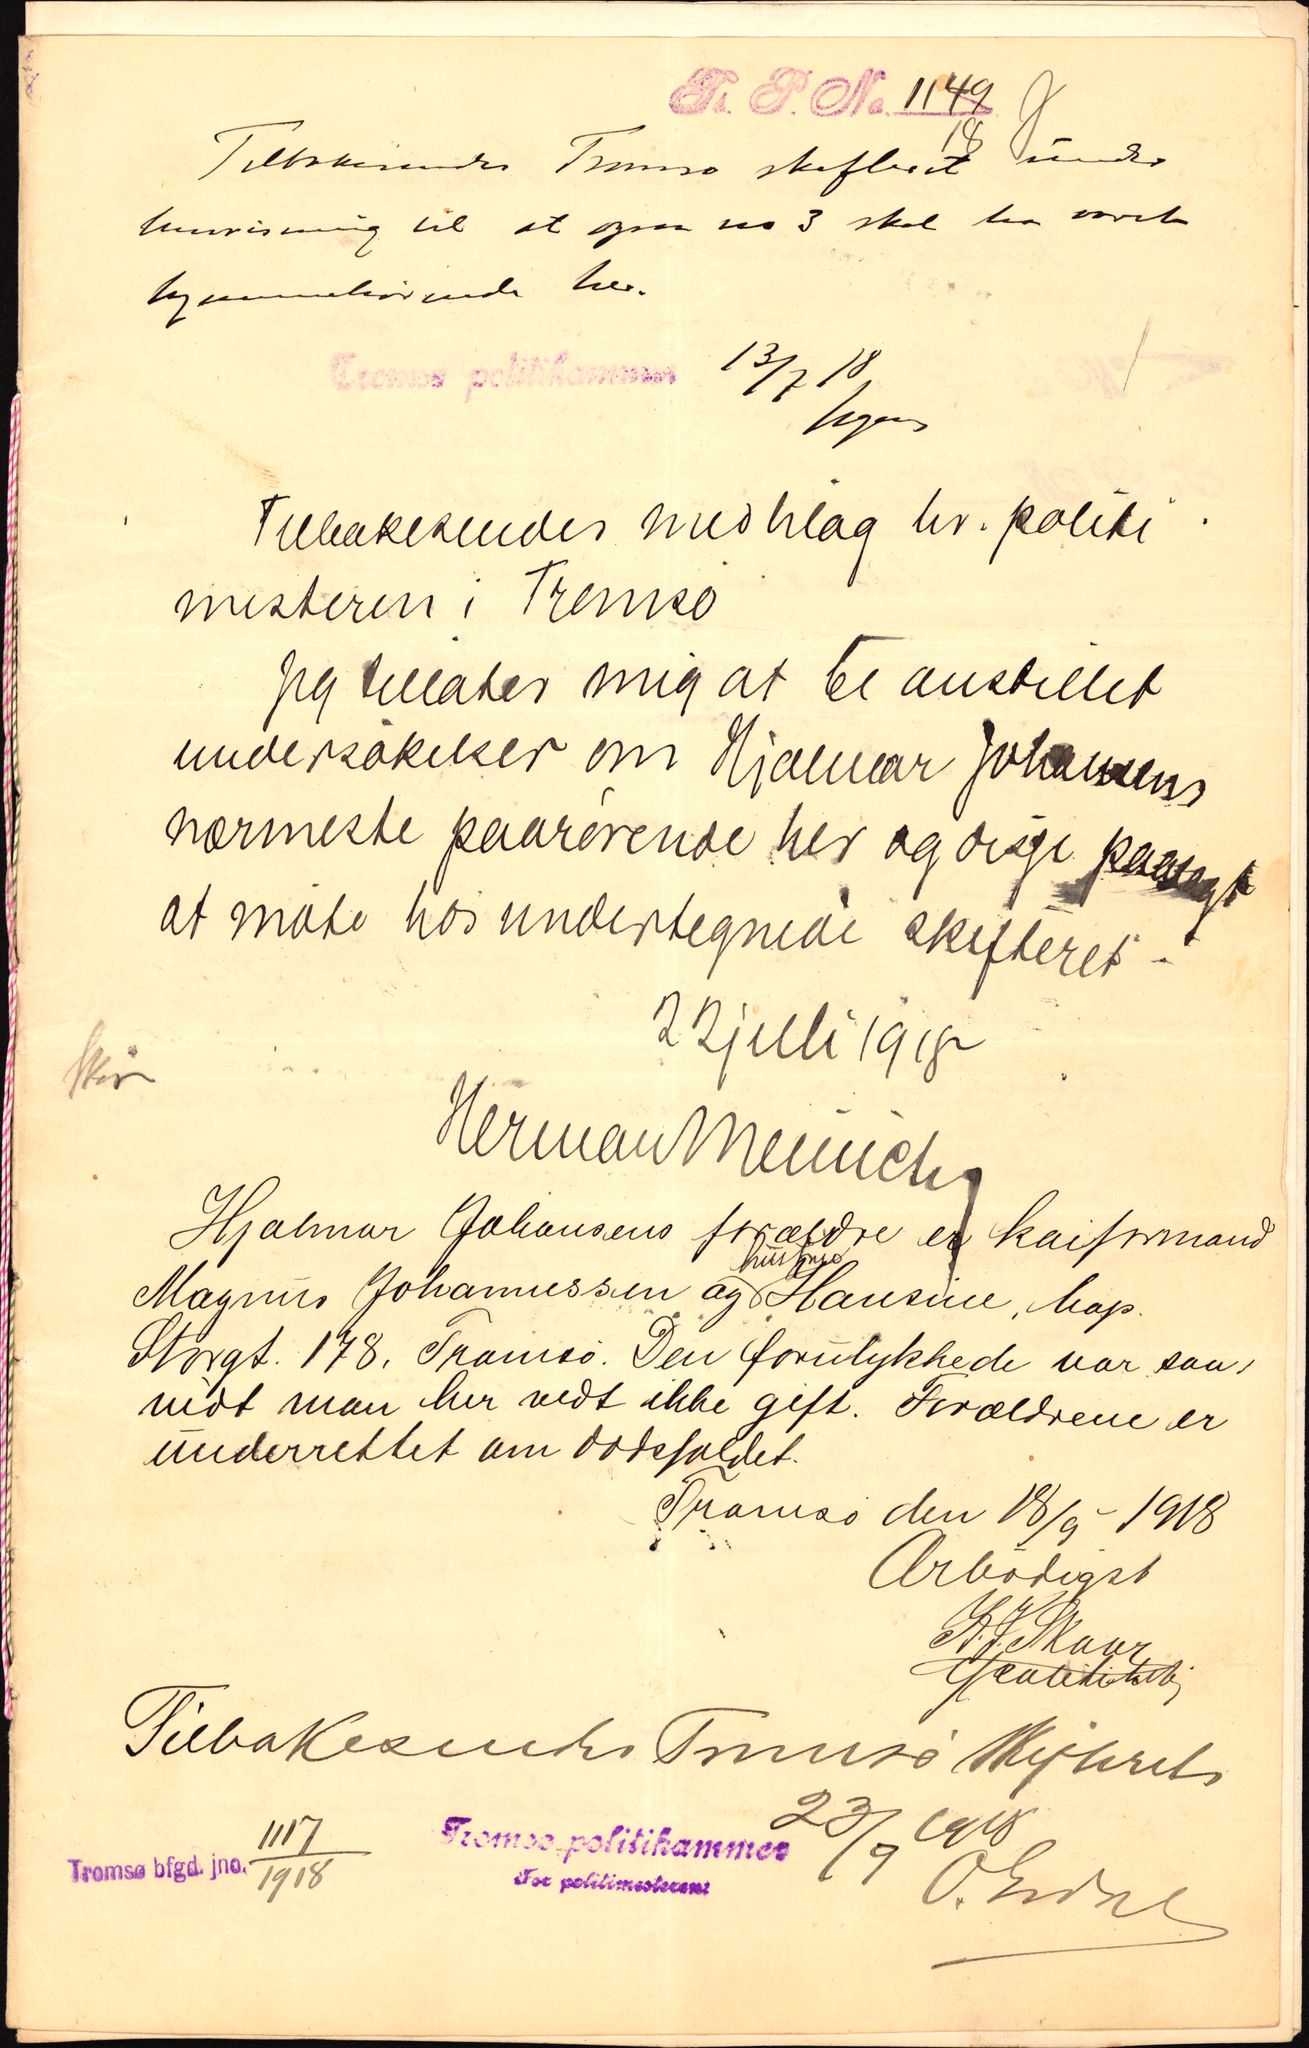 Tr. P. No. 1149
18
Tilbakesendes Tromsø skifteret under
henvisning til at opg no 3 skal ha været
hjemmehørende her.
Tromsø politikammer 13/7 18
Tilbakesendes med bilag hr. politi
mesteren i Tromsø
Jeg tillater mig at be anstillet
undersøkelser om Hjalmar Johansens
nærmeste paarørende her og disse paalagt
at møte hos undertegnede skifteret.
22 juli 1918
Herman Meinich
Hjalmar Johansens forældre er kaiformand
Magnus Johannessen og hustru Hansine, bop.
Storgt. 178, Tromsø. Den forulykkede var saa-
vidt man her vedt ikke gift. Forældrene er
underrettet om dødsfaldet.
Tromsø den 18/9 - 1918
Ærbødigst
Skaar
Tilbakesendes Tromsø skifteret
23/9 1918
Tromsø politikammer
For politimesteren:
Tromsø bfgd. jno. 1117
1918